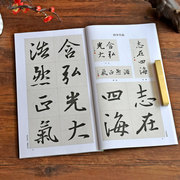 含弘光大
浩然正氣
含弘
光大
志在
四海
浩然正氣
志在
四海